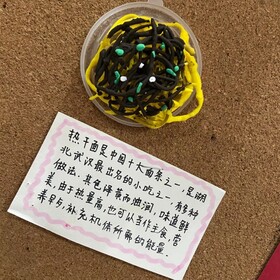 热干面是中国十大面条之一，是湖
北武汉最出名的小吃之一，有多种
做法。其色泽黄而油润，味道鲜
美，由于热量高，也可以当作主食，营
养早点，补充机体所需的能量。